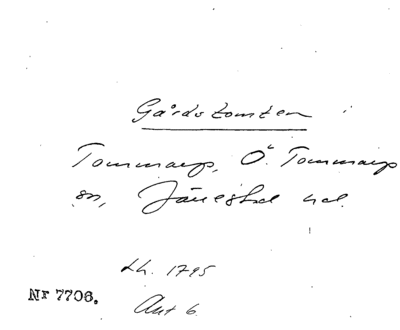 Gårdstomten
Tommarp, Ö. Tommarp
sn, Järrestad hd.
Lh. 1795
Nr 7706.
Akt 6